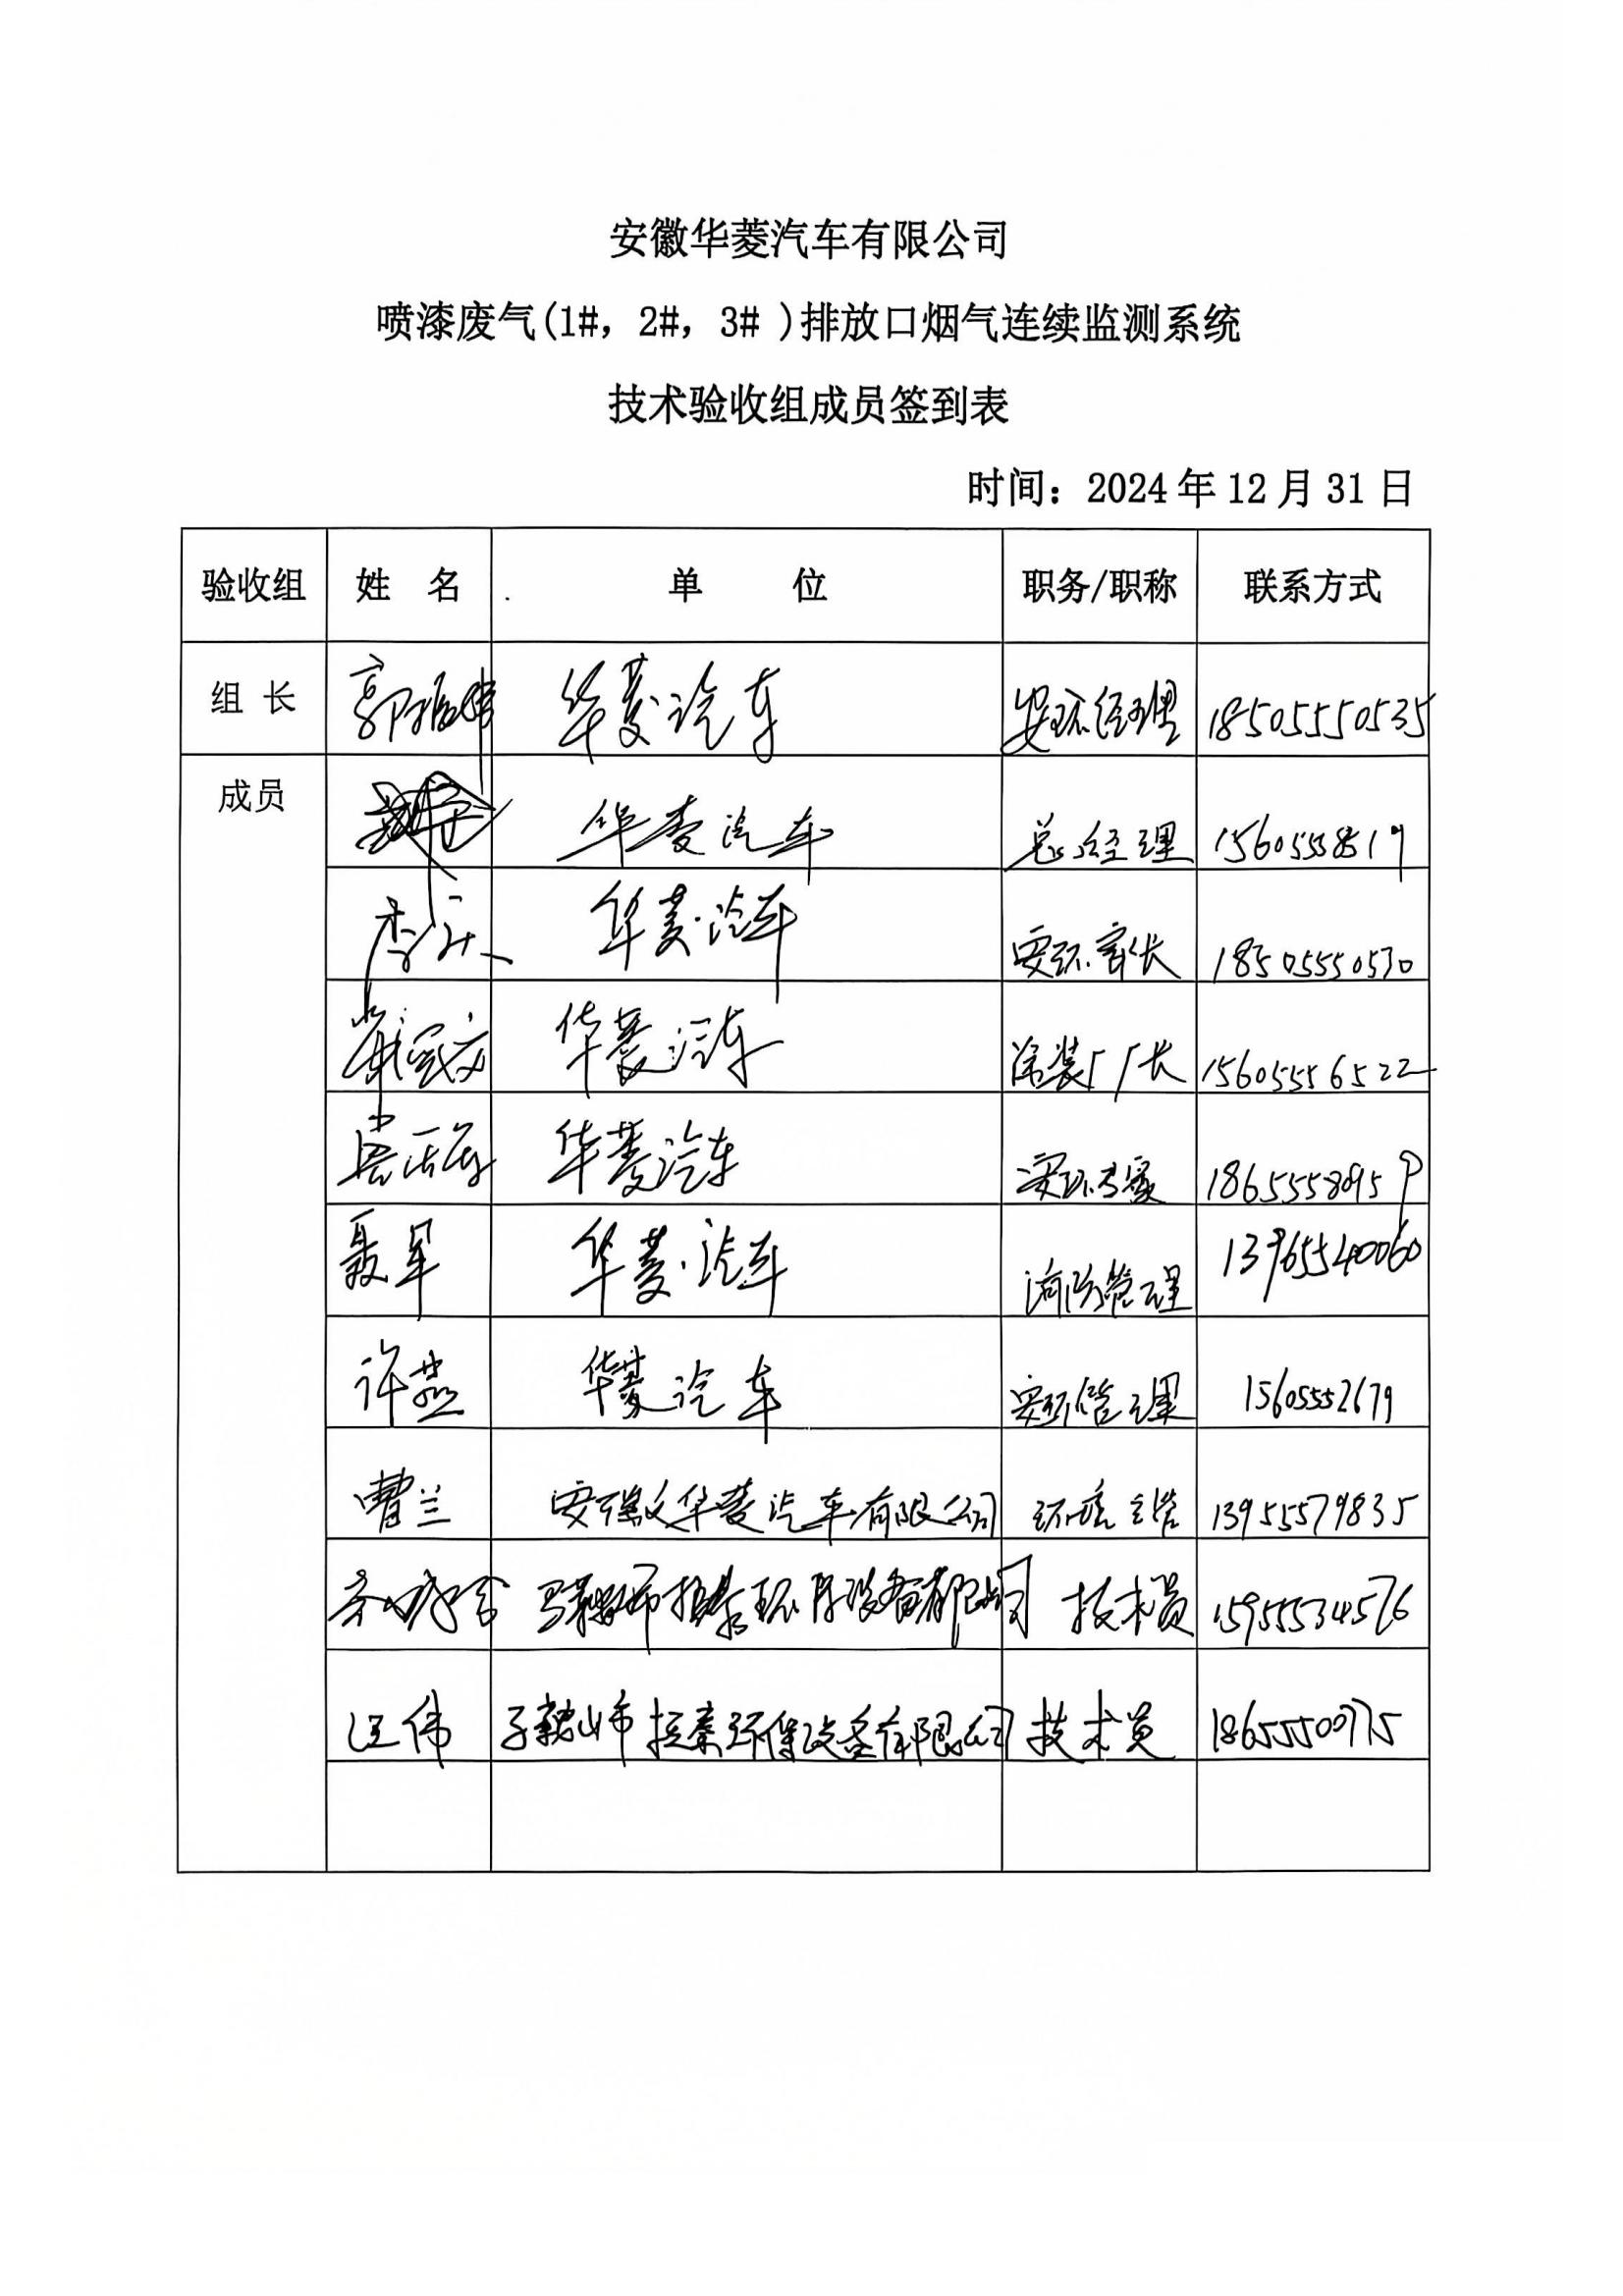 安徽华菱汽车有限公司
喷漆废气(1#，2#，3# )排放口烟气连续监测系统
技术验收组成员签到表
时间：2024年12月31日
验收组 姓 名 单 位 职务/职称 联系方式
组 长 郭振 华菱汽车 安环经理 18505550535
成员 华菱汽车 总经理
李 华菱汽车 安环 长 18505550530
华菱汽车 涂装厂厂长 15605556522
华菱汽车 安环 18655558095
聂军 华菱汽车 消防管理 13965540060
许燕 华菱汽车 安环管理 15605552679
曹兰 安徽华菱汽车有限公司 环境主管 13955579835
马鞍山市拓泰环保设备有限公司 技术员 15955534576
汪伟 马鞍山市拓泰环保设备有限公司 技术员 18655500775